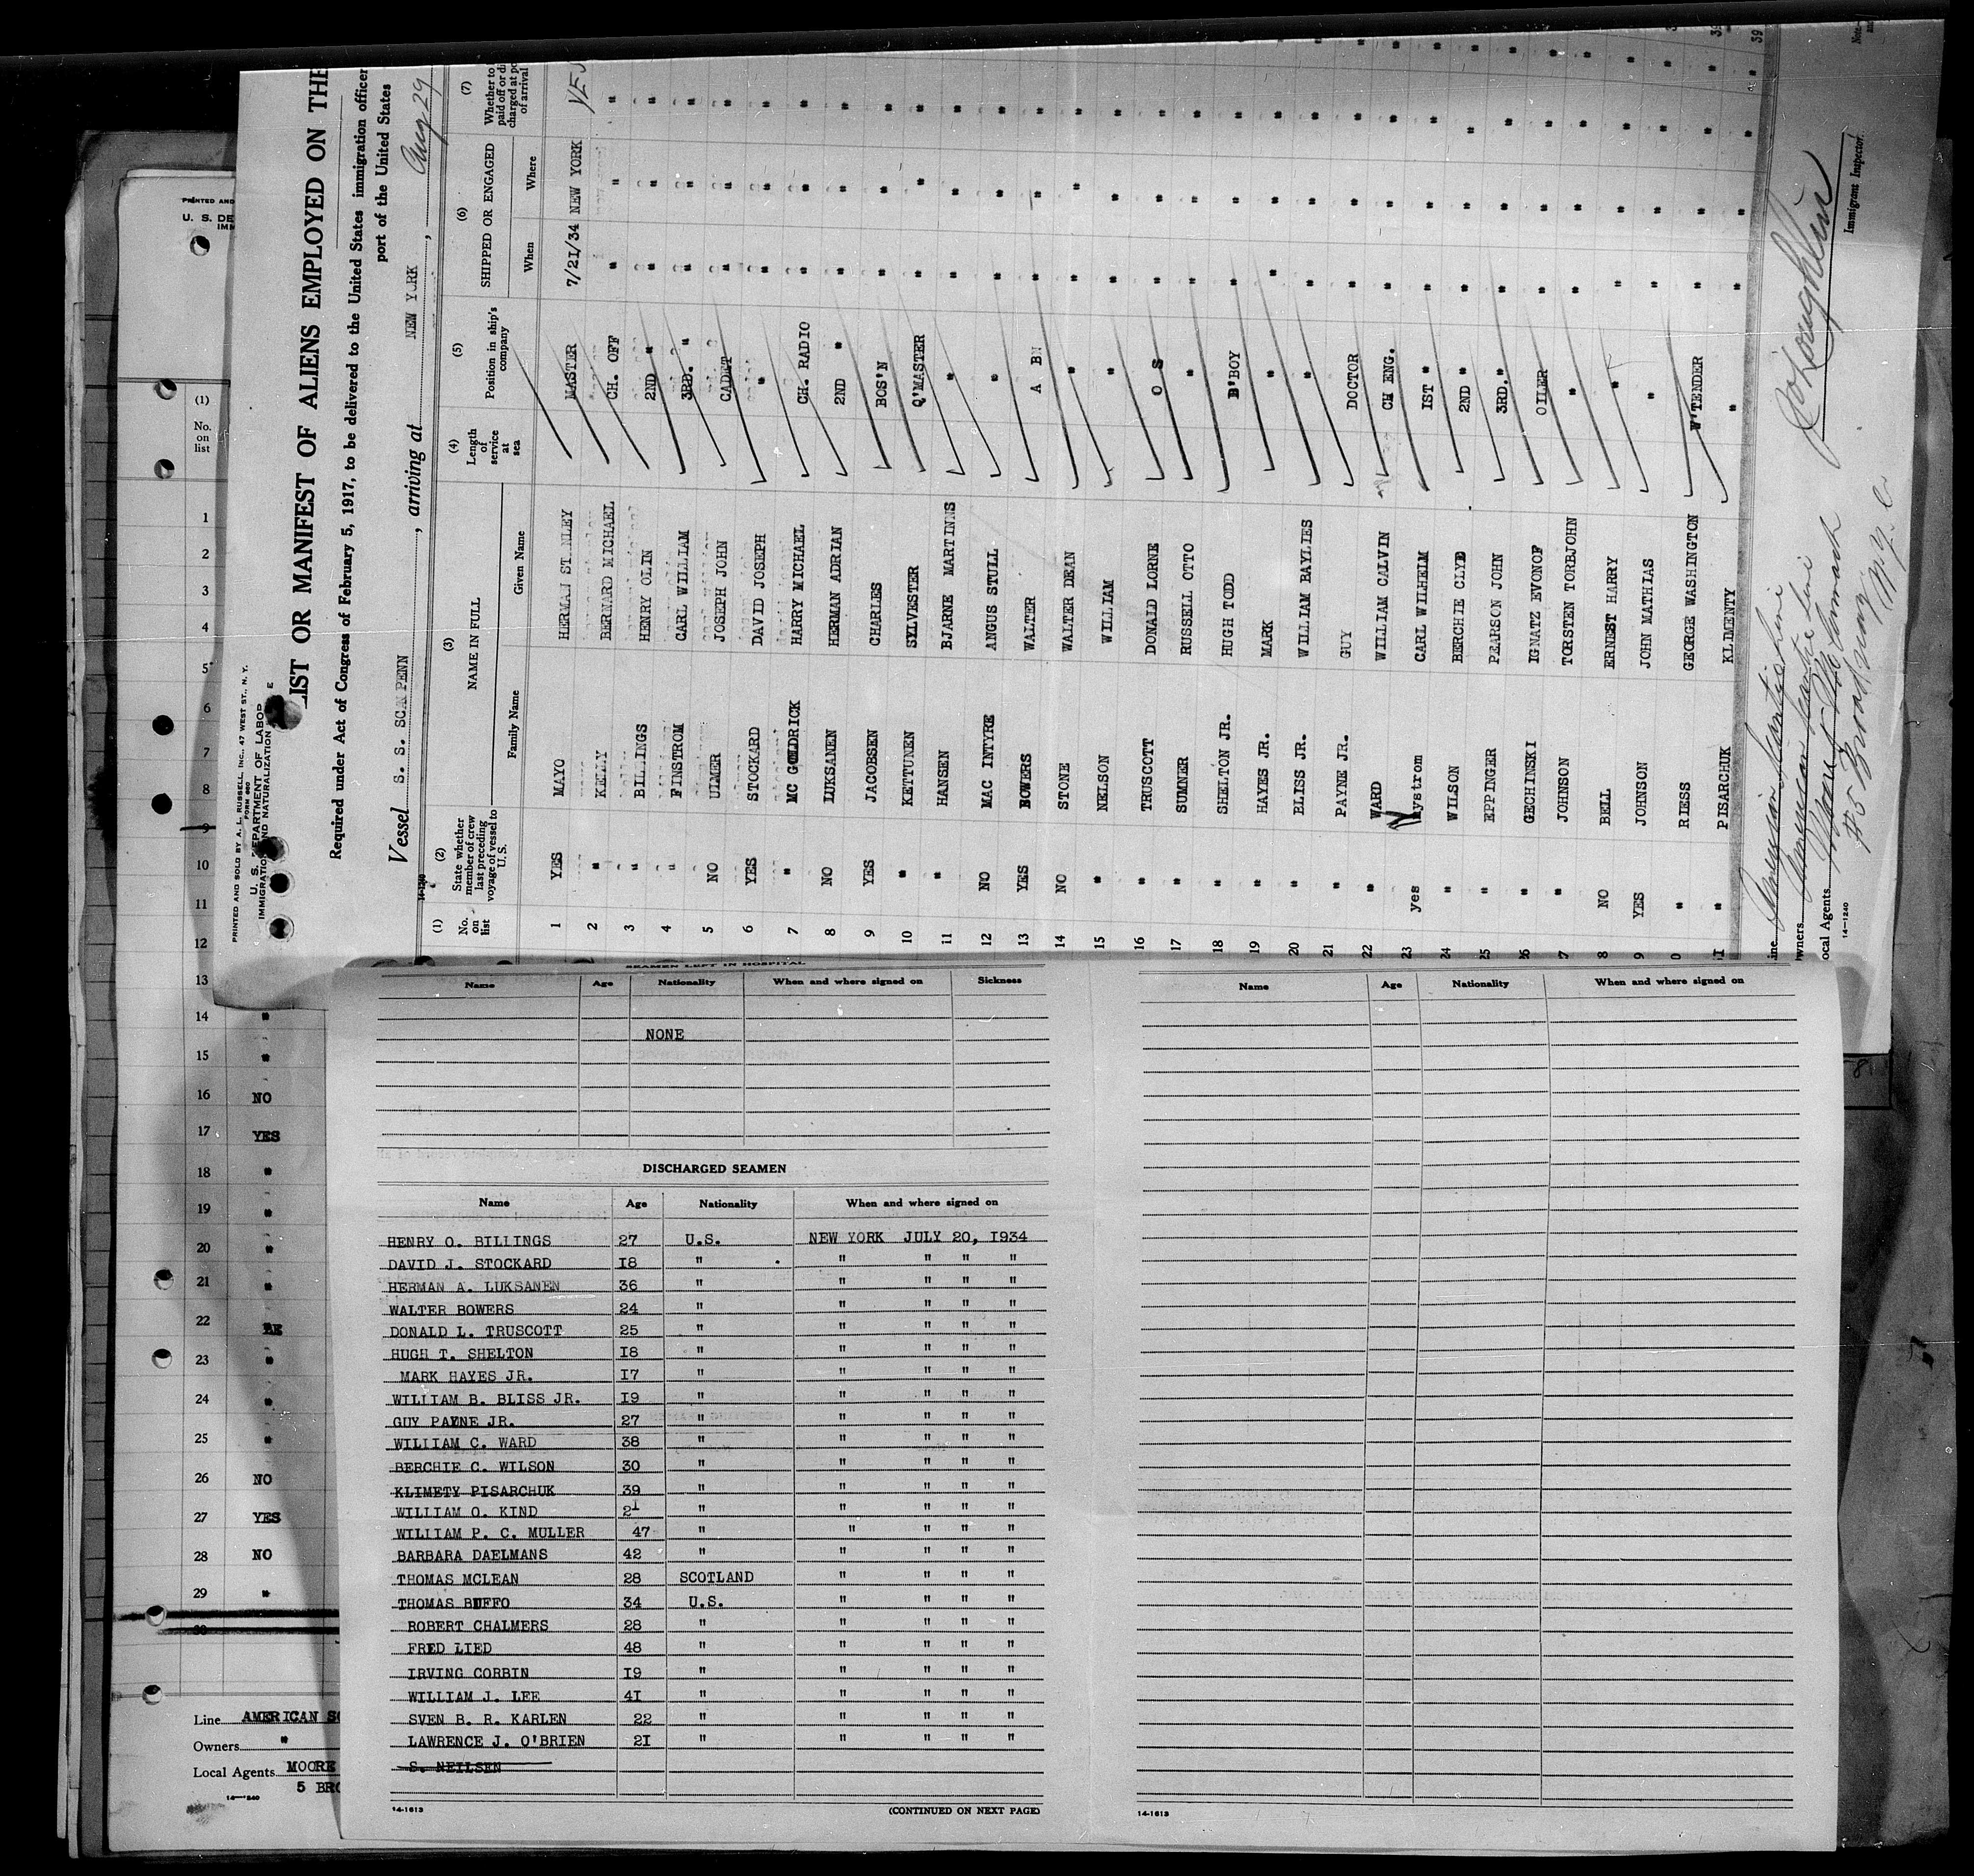 PRINTED AND SOLD BY A. L. RUSSELL, INC., 47 WEST ST., N. Y.
FORM 660
U. S. DEPARTMENT OF LABOR
IMMIGRATION AND NATURALIZATION
LIST OR MANIFEST OF ALIENS EMPLOYED ON THE
Required under Act of Congress of February 5, 1917, to be delivered to the United States immigration officer
port of the United States
Vessel S. S. SCANPENN, arriving at NEW YORK, Aug 29
14-1240
(1) No. on list (2) State whether member of crew last preceding voyage of vessel to U.S. (3) NAME IN FULL Family Name Given Name (4) Length of service at sea (5) Position in ship's company (6) SHIPPED OR ENGAGED When Where (7) Whether to paid off or di charged at po of arrival
1 YES MAYO HERMAN STANLEY MASTER 7/21/34 NEW YORK YES
2 " KELLY BERNARD MICHAEL CH. OFF " " "
3 " BILLINGS HENRY OLIN 2ND " " " "
4 " FINSTROM CARL WILLIAM 3RD. " " " "
5 NO ULMER JOSEPH JOHN CADET " " "
6 YES STOCKARD DAVID JOSEPH " " " "
7 " MC GOLDRICK HARRY MICHAEL CH. RADIO " " "
8 NO LUKSANEN HERMAN ADRIAN 2ND " " " "
9 YES JACOBSEN CHARLES BOS'N " " "
10 " KETTUNEN SYLVESTER Q'MASTER " " "
11 " HANSEN BJARNE MARTINNS " " " "
12 NO MAC INTYRE ANGUS STULL " " " "
13 YES BOWERS WALTER A B " " "
14 NO STONE WALTER DEAN " " " "
15 " NELSON WILLIAM " " " "
16 " TRUSCOTT DONALD LORNE O S " " "
17 " SUMNER RUSSELL OTTO " " " "
18 " SHELTON JR. HUGH TODD B'BOY " " "
19 " HAYES JR. MARK " " " "
20 " BLISS JR. WILLIAM BAYLIES " " " "
21 " PAYNE JR. GUY DOCTOR " " "
22 " WARD WILLIAM CALVIN CH ENG. " " "
23 yes Nystrom CARL WILHELM IST " " " "
24 " WILSON BERCHIE CLYD 2ND " " " "
25 " EPPINGER PEARSON JOHN 3RD. " " " "
26 " GECHINSKI IGNATZ EVONOF OILER " " "
7 " JOHNSON TORSTEN TORBJOHN " " " "
8 NO BELL ERNEST HARRY " " " "
9 YES JOHNSON JOHN MATHIAS " " " "
0 " RIESS GEORGE WASHINGTON W'TENDER " " "
1 " PISARCHUK KLIMENTY " " " "
ine American Scantic Line
wners American Scantic Line
ocal Agents Moore & McCormack
#5 Broadway N.Y.C.
14-1240
Immigrant Inspector.
PRINTED AND
U. S. DE
IMM
(1)
No.
on
list
1
2
3
4
5
6
7
8
9
10
11
12
13
14 "
15 "
16 NO
17 YES
18 "
19 "
20 "
21 "
22
23 "
24 "
25 "
26 NO
27 YES
28 NO
29 "
30
Line AMERICAN SC
Owners "
Local Agents MOORE
5 BRO
SEAMEN LEFT IN HOSPITAL
Name Age Nationality When and where signed on Sickness
NONE
DISCHARGED SEAMEN
Name Age Nationality When and where signed on
HENRY O. BILLINGS 27 U.S. NEW YORK JULY 20, 1934
DAVID J. STOCKARD 18 " " " " "
HERMAN A. LUKSANEN 36 " " " " "
WALTER BOWERS 24 " " " " "
DONALD L. TRUSCOTT 25 " " " " "
HUGH T. SHELTON 18 " " " " "
MARK HAYES JR. 17 " " " " "
WILLIAM B. BLISS JR. 19 " " " " "
GUY PAYNE JR. 27 " " " " "
WILLIAM C. WARD 38 " " " " "
BERCHIE C. WILSON 30 " " " " "
KLIMETY PISARCHUK 39 " " " " "
WILLIAM O. KIND 21 " " " " "
WILLIAM P. C. MULLER 47 " " " " "
BARBARA DAELMANS 42 " " " " "
THOMAS MCLEAN 28 SCOTLAND " " " "
THOMAS BUFFO 34 U.S. " " " "
ROBERT CHALMERS 28 " " " " "
FRED LIED 48 " " " " "
IRVING CORBIN 19 " " " " "
WILLIAM J. LEE 41 " " " " "
SVEN B. R. KARLEN 22 " " " " "
LAWRENCE J. O'BRIEN 21 " " " " "
S. NEILSEN
14-1613
(CONTINUED ON NEXT PAGE)
Name Age Nationality When and where signed on
14-1613